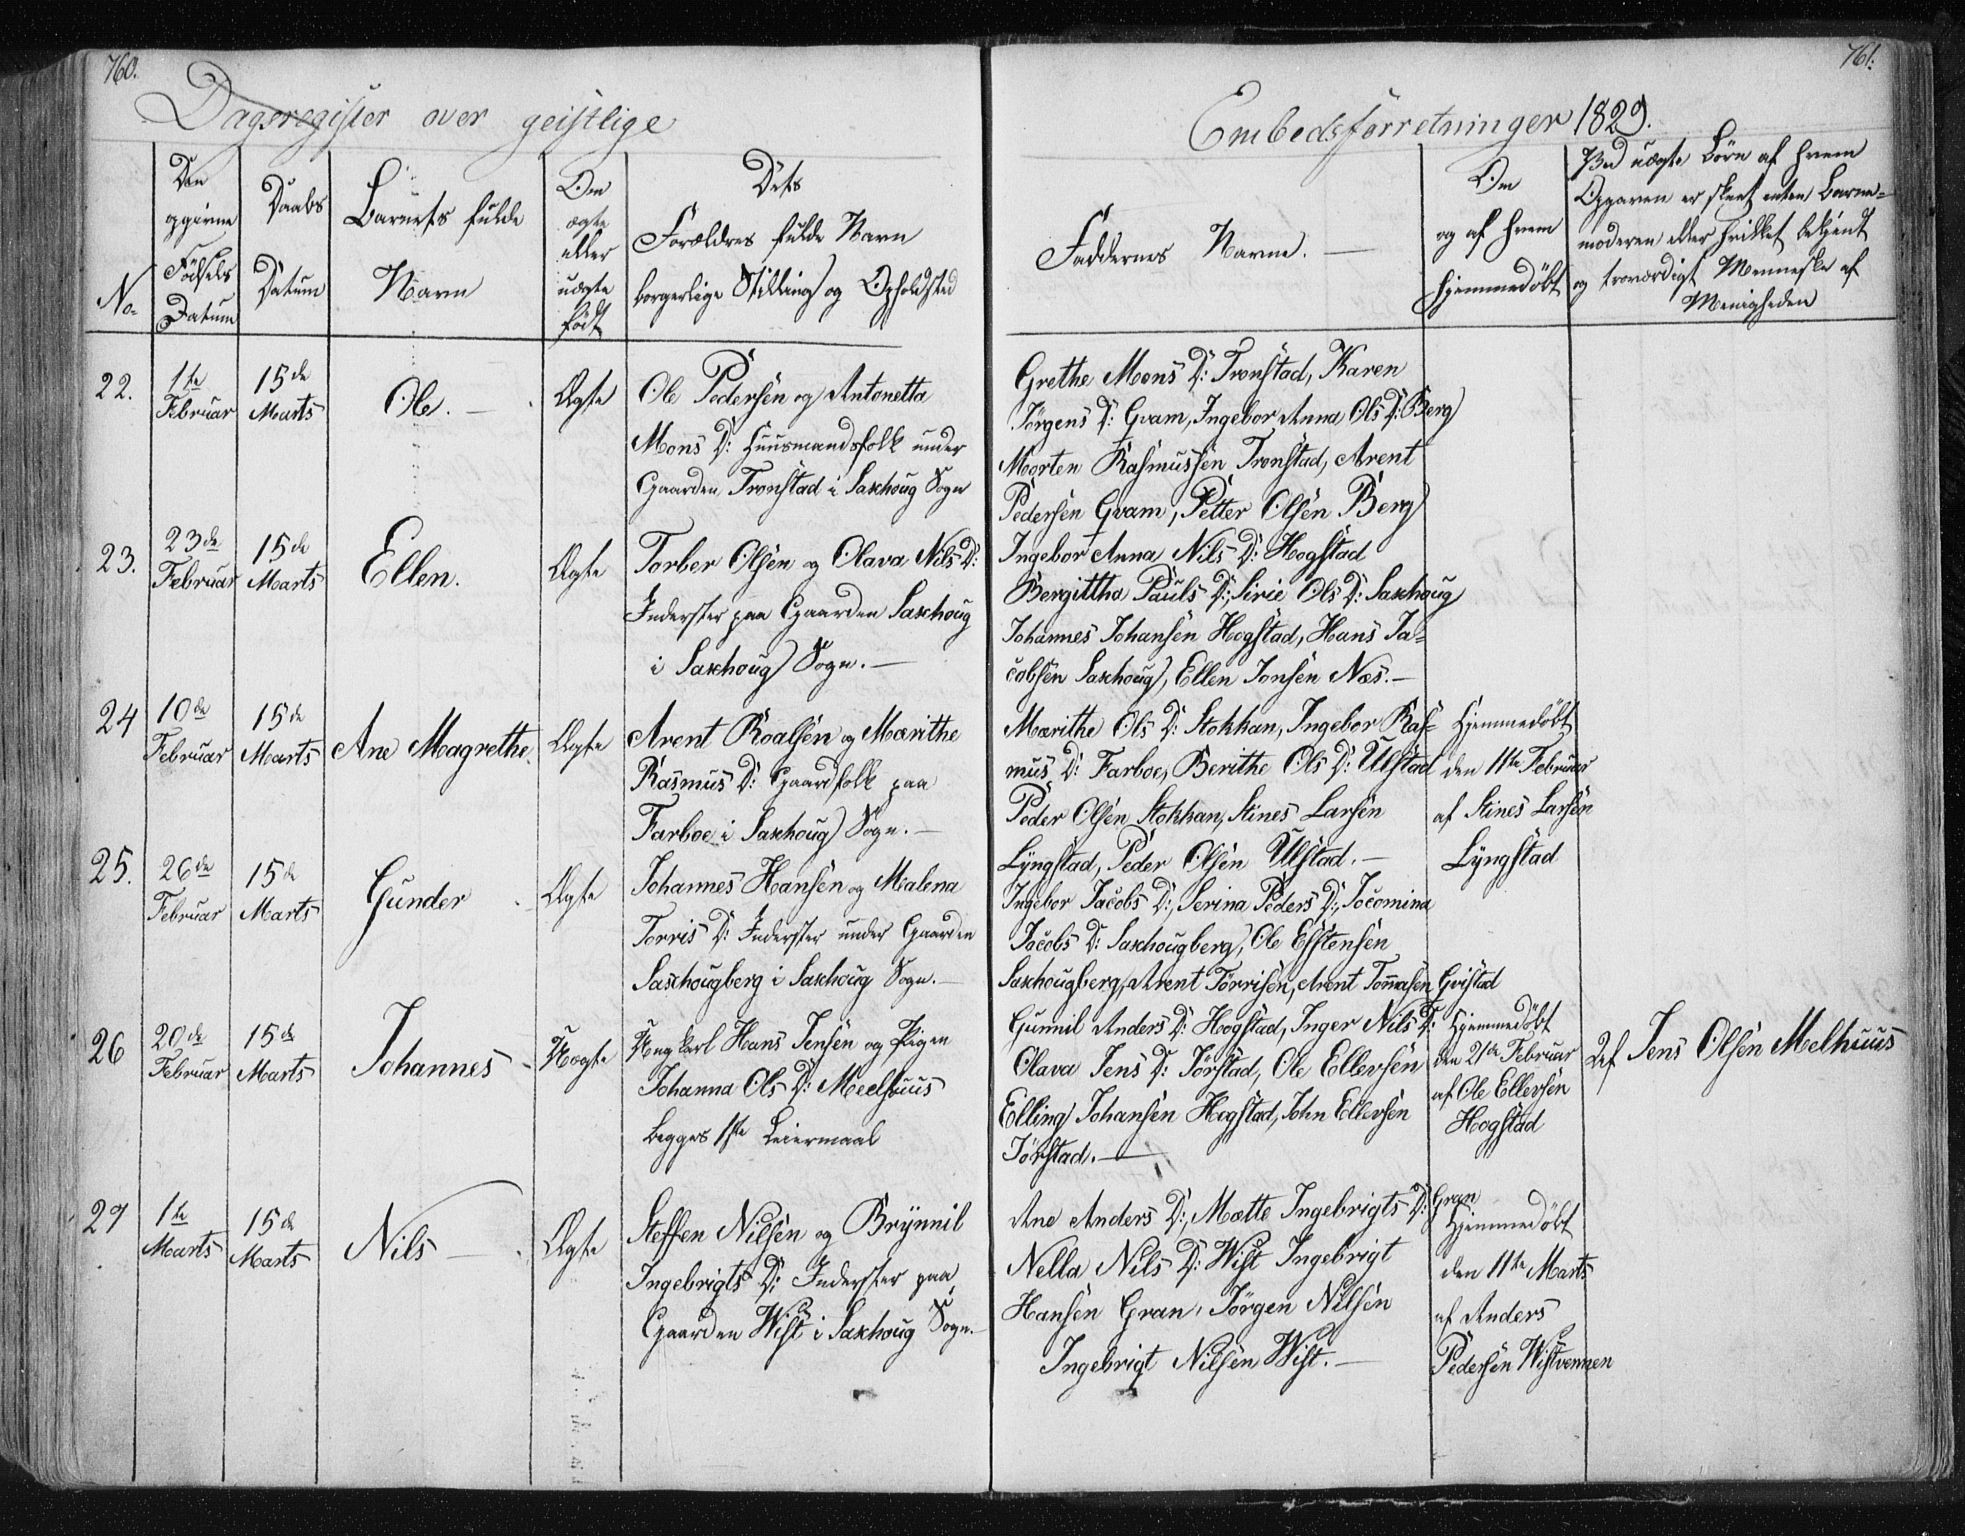 760.
Dagsregister over geistlige
No.
Den opgivne Födsels Datum
Daabs Datum
Barnets fulde Navn
Om ægte eller uægte födt
Dets Forældres fulde Navn borgerlige Stilling og Opholdsted
22.
1te Februar
15de Marts
Ole. —
Ægte
Ole Pedersen og Antonetta
Mons D: Huusmandsfolk under
Gaarden Tronstad i Saxhoug Sogn
23.
23de Februar
15de Marts
Ellen.
Ægte
Torber Olsen og Olava Nils D:
Inderster paa Gaarden Saxhoug
i Saxhoug Sogn. —
24
10de Februar
15de Marts
Ane Magrethe.
Ægte
Arent Roalsen og Marithe
Rasmus D: Gaardfolk paa
Farboe i Saxhoug Sogn. —
25.
26de Februar
15de Marts
Gunder
Ægte
Johannes Hansen og Malena
Torris D: Inderster under Gaarden
Saxhougberg i Saxhoug Sogn. —
26
20de Februar
15de Marts
Johannes
Uægte
Ungkarl Hans Jensen og Pigen
Johanna Ols D: Meelhuus
begges 1ste Leiermaal
27
1te Marts
15de Marts
Nils —
Ægte
Steffen Nilsen og Brynnil
Ingebrigts D: Inderster paa
Gaarden Wist i Saxhoug Sogn. —
761.
Embedsforretninger 1829.
Faddernes Navne. —
Om og af hvem hjemmedöbt
Ved uægte Börn af hvem
Opgaven er skeet enten Barne-
moderen eller hvilket bekjent
og troværdigt Menneske af
Menigheden
Grethe Mons D: Tronstad, Karen
Jörgens D: Gvam, Ingebor Anna Ols D: Berg
Morten Rasmussen Tronstad, Arent
Pedersen Gvam, Petter Olsen Berg
Ingebor Anna Nils D: Hogstad
Bergittha Pauls D:, Sirie Ols D: Saxhoug
Johannes Johansen Hogstad, Hans Ja-
cobsen Saxhoug, Ellen Jonsen Næs. —
Marithe Ols D: Stokkan, Ingebor Ras-
mus D: Farboe, Berithe Ols D: Ulstad
Peder Olsen Stokkan, Stines Larsen
Lyngstad, Peder Olsen Ulstad. —
Hjemmedöbt
den 11te Februar
af Stines Larsen
Lyngstad
Ingebor Jacobs D:, Serina Peders D:, Jocomina
Jacobs D: Saxhougberg, Ole Estensen
Saxhougberg, Arent Törrisen, Arent Tommasen Gristad
Gunnil Anders D: Hogstad, Inger Nils D:
Olava Jens D: Jörstad, Ole Ellevsen
Elling Johansen Hogstad, John Ellevsen
Jörstad. —
Hjemmedöbt
den 21de Februar
af Ole Ellevsen
Hogstad
Af Jens Olsen Melhuus
Ane Anders D:, Mætte Ingebrigts D: Gran
Nella Nils D: Wist Ingebrigt
Hansen Gran, Jörgen Nilsen
Ingebrigt Nilsen Wist. —
Hjemmedöbt
den 11te Marts
af Anders
Pedersen Wistvennen